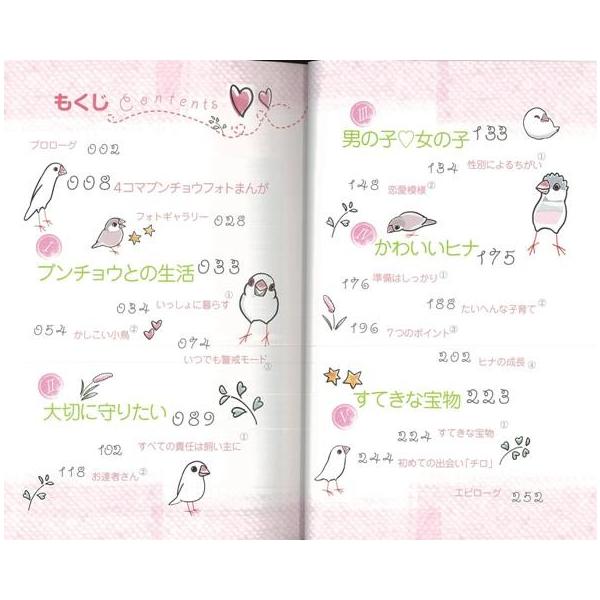 もくじ Contents
プロローグ 002
008 4コマブンチョウフォトまんが
フォトギャラリー 028
I
ブンチョウとの生活 033
034 いっしょに暮らす①
054 かしこい小鳥②
074
いつでも警戒モード③
II
大切に守りたい 089
102 すべての責任は飼い主に①
118 お達者さん②
III
男の子♡女の子 133
134 性別によるちがい①
148 恋愛模様②
IV
かわいいヒナ 175
176 準備はしっかり①
188 たいへんな子育て②
196 7つのポイント③
202 ヒナの成長④
V
すてきな宝物 223
224 すてきな宝物①
244 初めての出会い「チロ」②
エピローグ 252